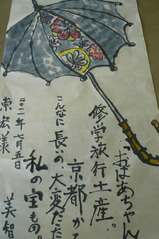 おばあちゃん
修学旅行土産
京都から
こんなに長い、大変だった
私の宝もの。
二二年七月五日
宏様
美智